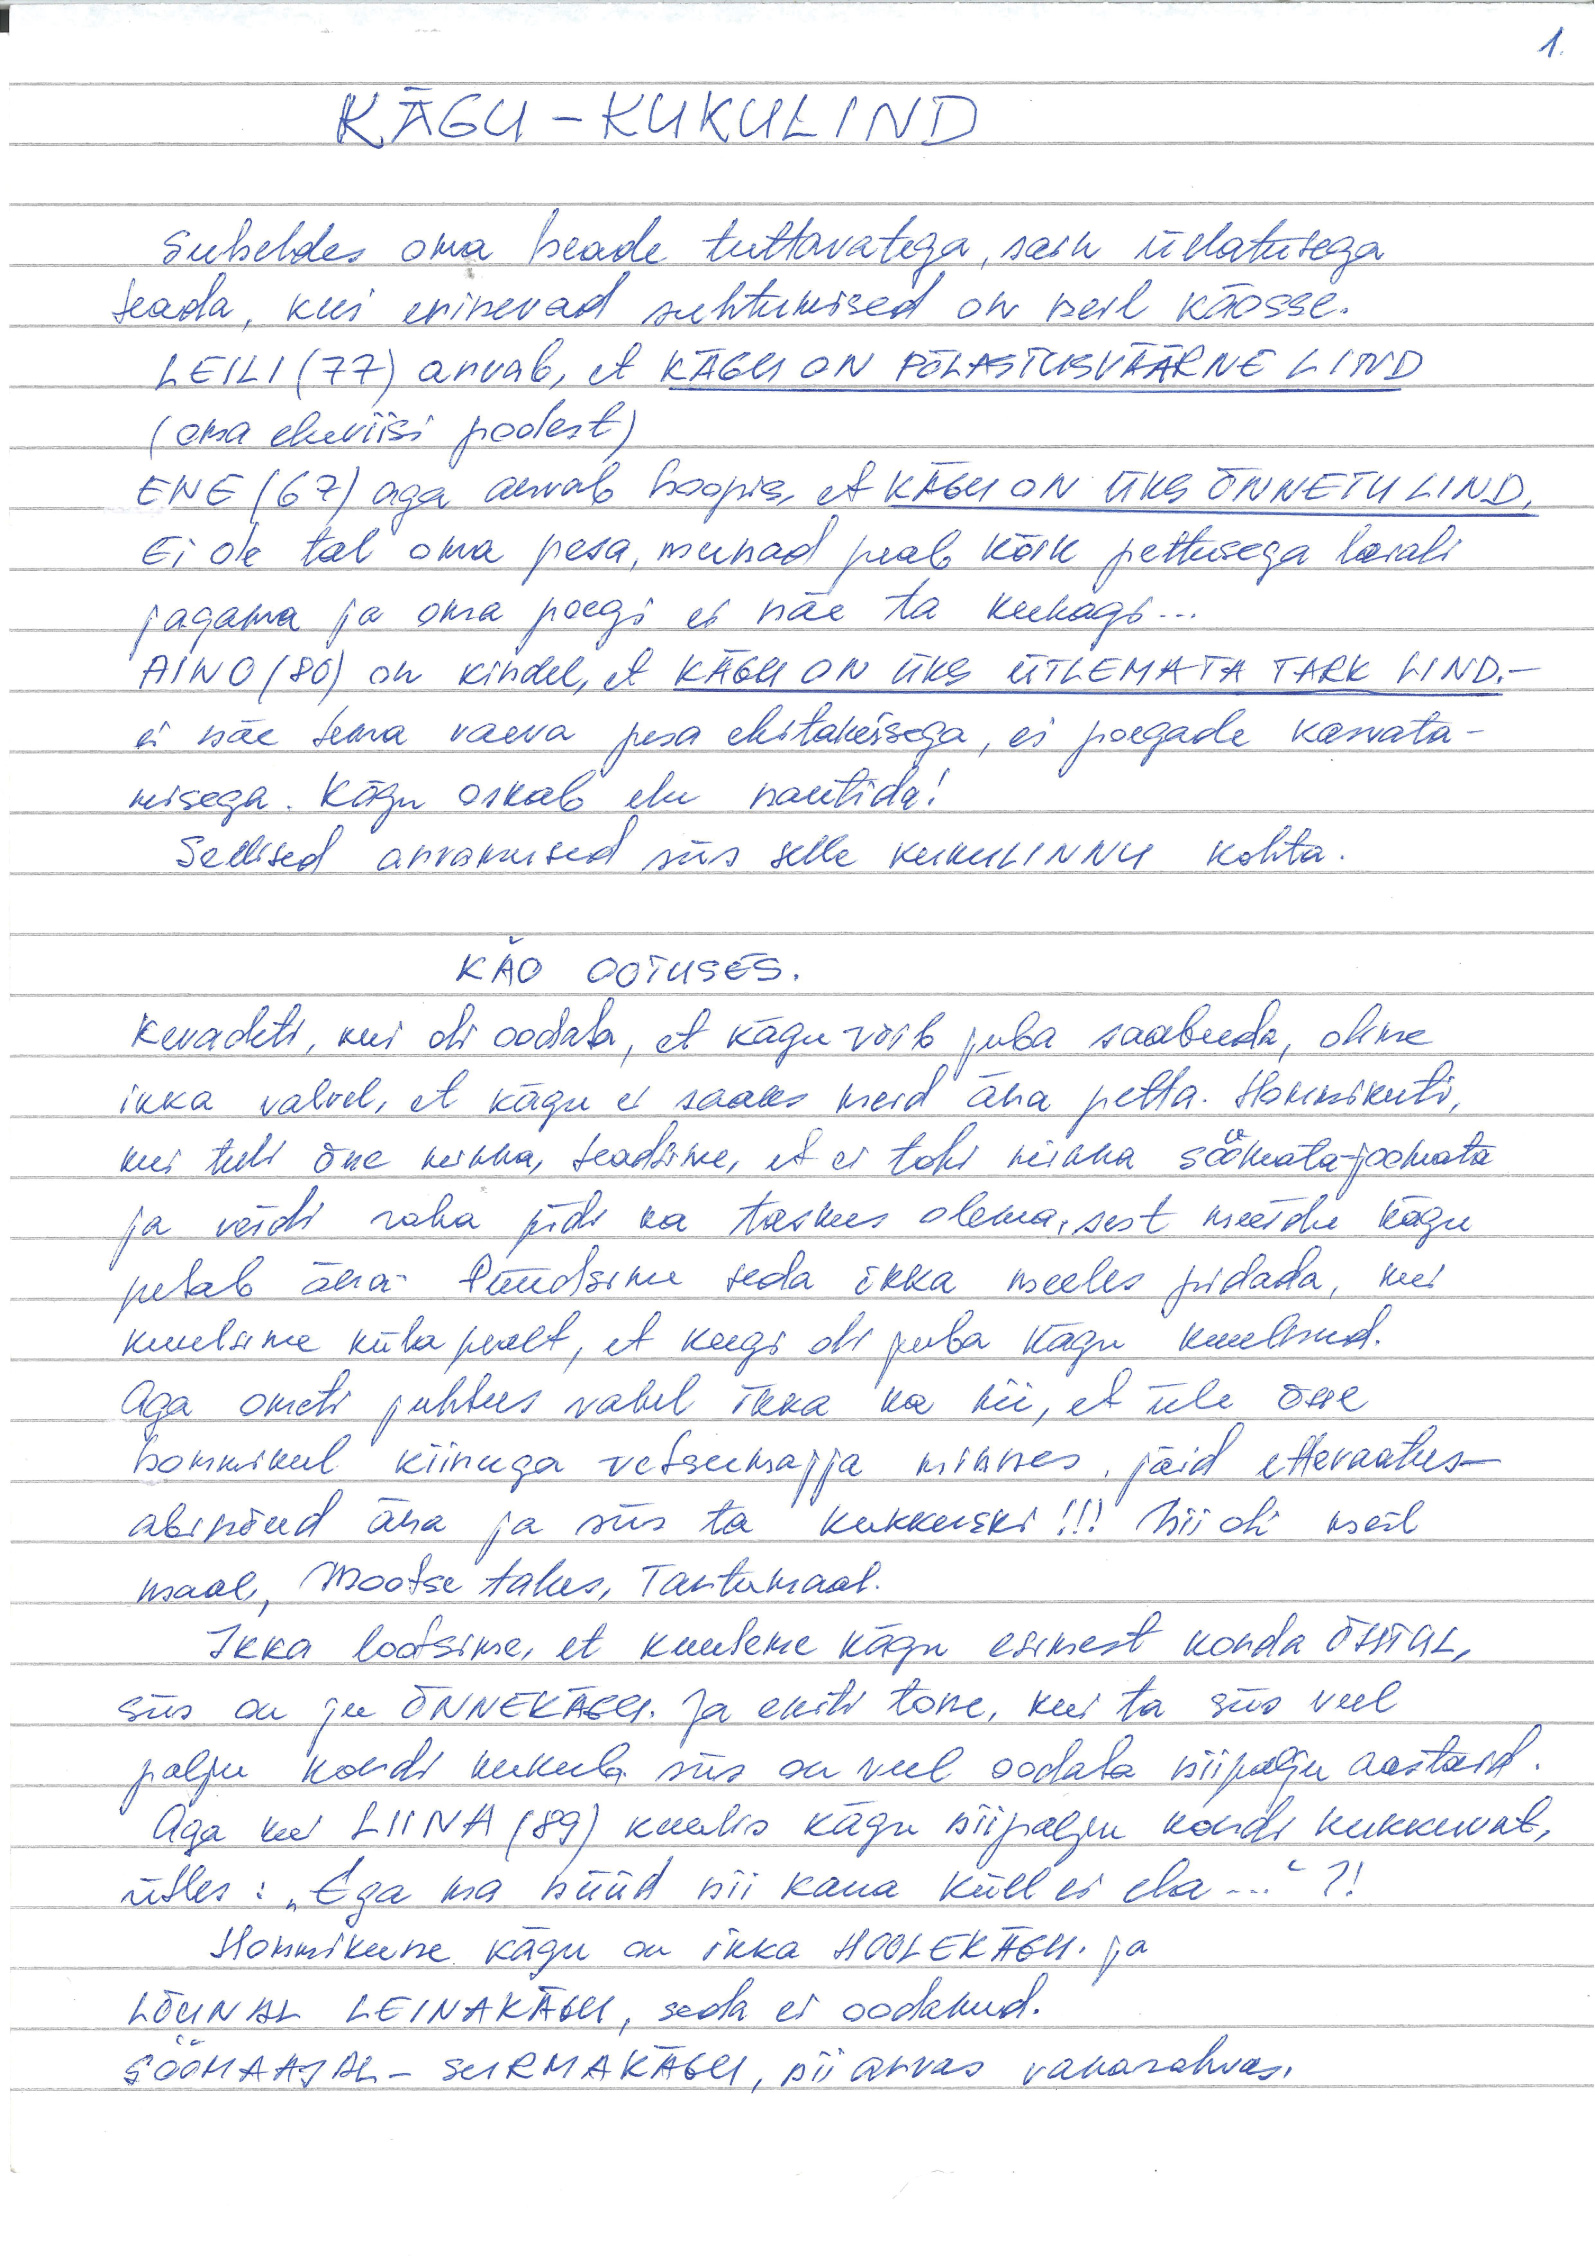 1.
KÄGU – KUKULIND
Suheldes oma heade tuttavatega, sain üllatusega
teada, kui erinevad suhtumised on neil käosse.
LEILI (77) arvab, et KÄGU ON PÕLASTUSVÄÄRNE LIND
(oma eluviisi poolest)
ENE (67) aga arvab hoopis, et KÄGU ON ÜKS ÕNNETU LIND.
Ei ole tal oma pesa, munad peab kõik pettusega laiali
jagama ja oma poegi ei näe ta kunagi...
AINO (80) on kindel, et KÄGU ON ÜKS ÜTLEMATA TARK LIND. –
ei näe tema vaeva pesa ehitamisega, ei poegade kasvata-
misega. Kägu oskab elu nautida!
Sellised arvamused siis selle KUKULINNU kohta.
KÄO OOTUSES.
Kevadeti, kui oli oodata, et kägu võib juba saabuda, olime
ikka valvel, et kägu ei saaks meid ära petta. Hommikuti,
kui tuli õue minna, teadsime, et ei tohi minna söömata-joomata
ja veidi raha pidi ka taskus olema, sest muidu kägu
petab ära. Püüdsime seda ikka meeles pidada, kui
kuulsime küla pealt, et keegi oli juba kägu kuulnud.
Aga ometi juhtus vahel ikka ka nii, et üle õue
hommikul kiiruga vetsumajja minnes, jäid ettevaatus-
abinõud ära ja siis ta kukkuski!!! Nii oli meil
maal, Mootse talus, Tartumaal.
Ikka lootsime, et kuuleme kägu esimest korda ÕHTUL,
siis on ju ÕNNEKÄGU. Ja eriti tore, kui ta siis veel
palju kordi kukub, siis on veel oodata niipalju aastaid.
Aga kui LIINA (89) kuulis kägu niipalju kordi kukkuvat,
ütles: „Ega ma nüüd nii kaua küll ei ela..." ?!
Hommikune kägu on ikka HOOLEKÄGU. ja
LÕUNAL LEINAKÄGU, seda ei oodanud.
SÖÖMAAJAL – SURMAKÄGU, nii arvas vanarahvas.